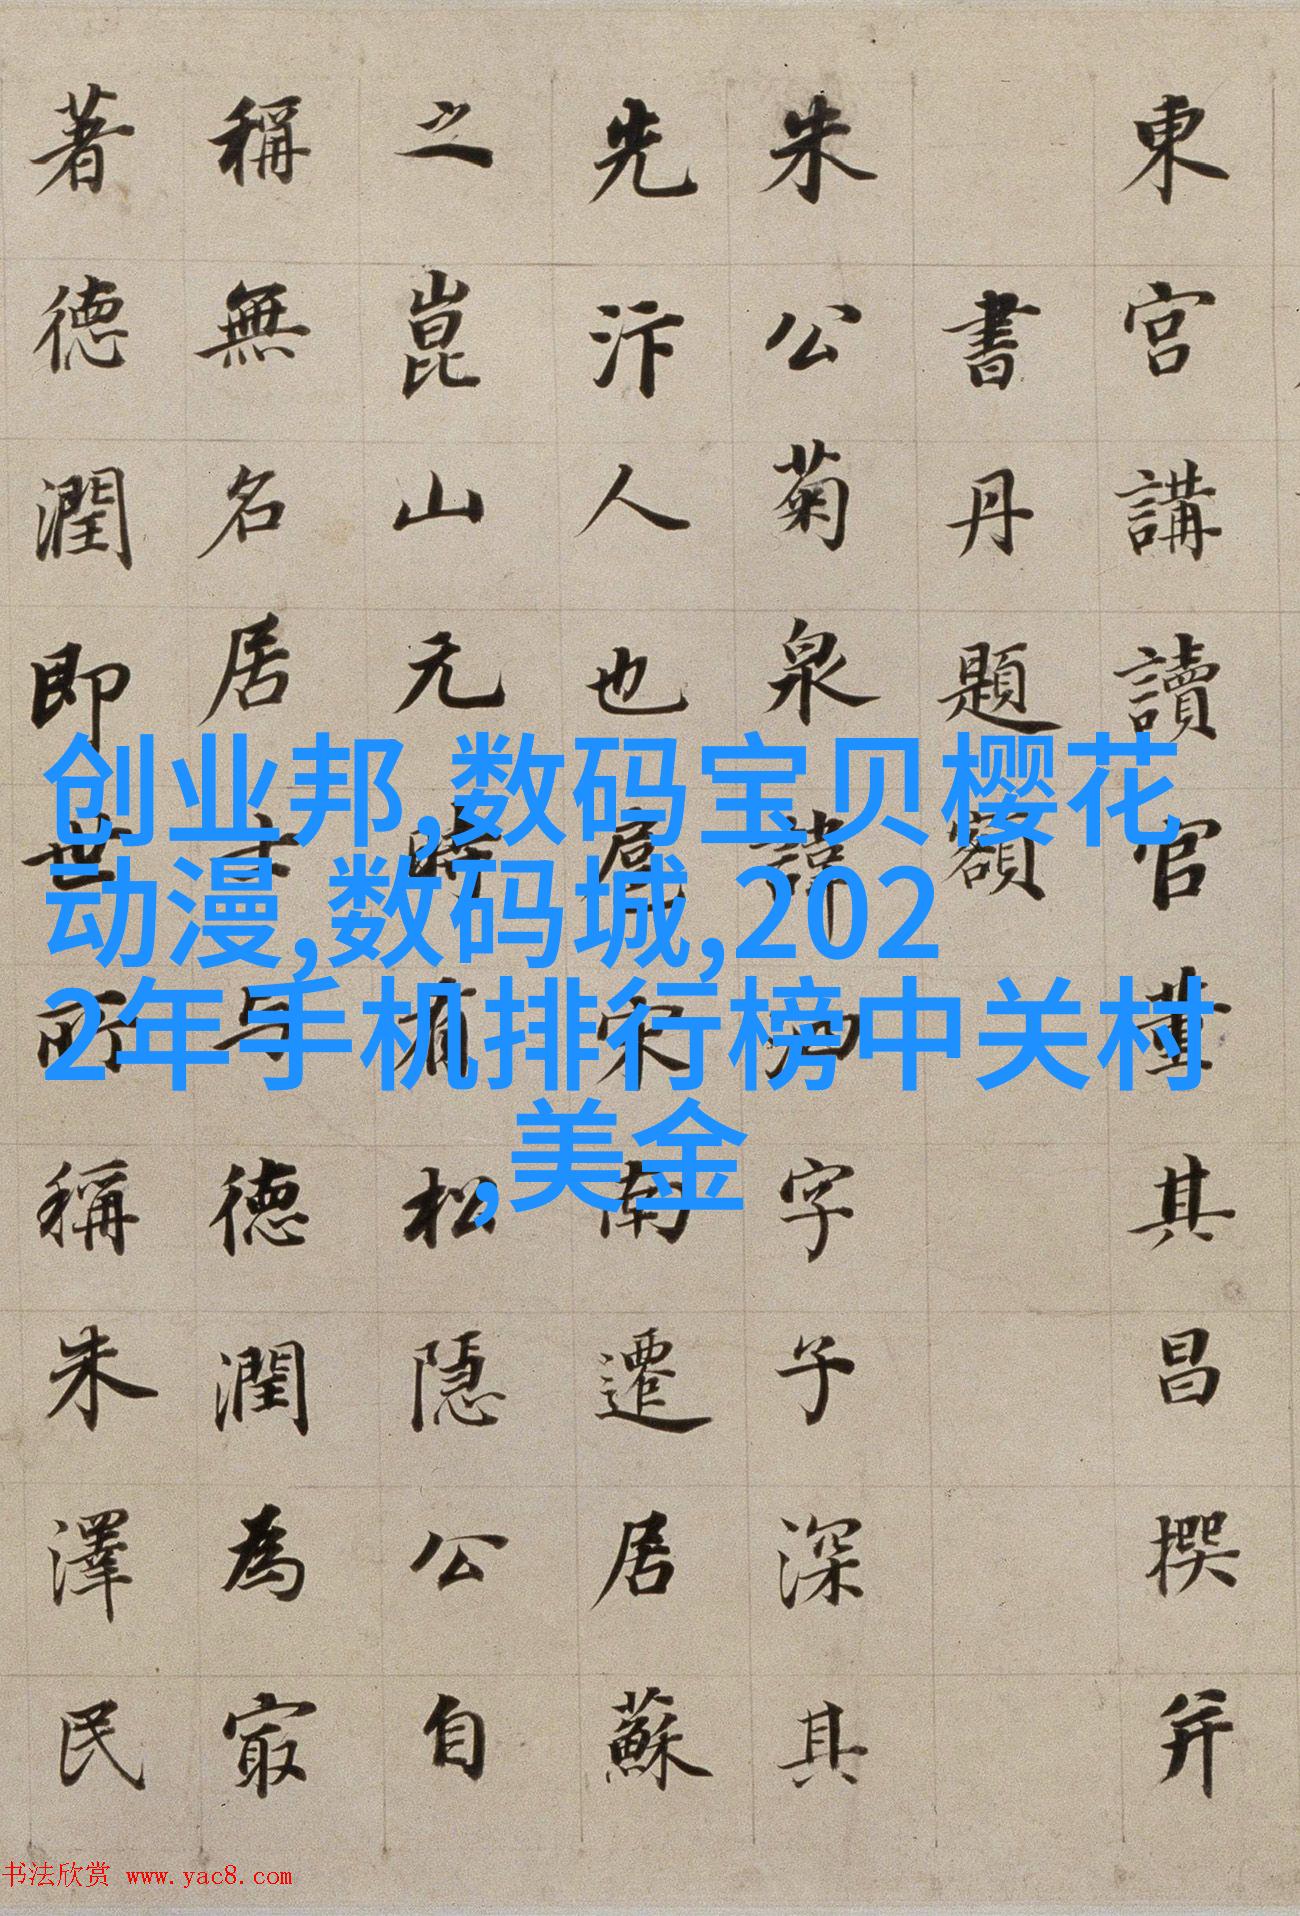 東宮講讀官董其昌撰并
書丹題額
朱公菊泉諱字子深其
先汴人也扈宋南遷居蘇
之崑山元時有松隱公自
稱無名居士与德潤為㝡
著德潤即世所稱朱澤民
创业邦,数码宝贝樱花
动漫,数码城,202
2年手机排行榜中关村
,美金
书法欣赏 www.yac8.com